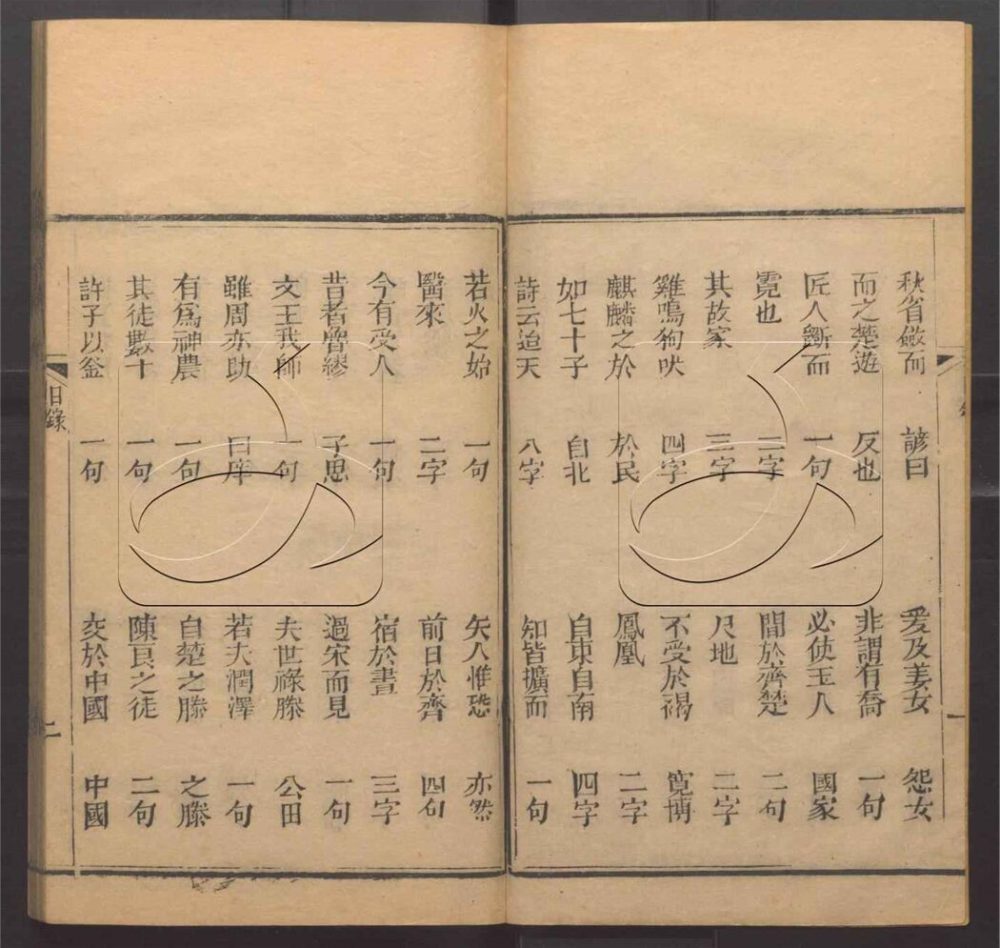 秋省斂而 諺曰 爰及姜女 怨女
而之楚遊 反也 非謂有喬 一句
匠人斲而 一句 必使玉人 國家
霓也 二字 間於齊楚 二句
其故家 三字 尺地 二字
雞鳴狗吠 四字 不受於褐 寬博
麒麟之於 於民 鳳凰 二字
如七十子 自北 自東自南 四字
詩云迨天 八字 知皆擴而 一句
若火之始 一句 矢人惟恐 亦然
醫來 二字 前日於齊 四句
今有受人 一句 宿於晝 三字
昔者魯繆 子思 過宋而見 一句
文王我師 一句 夫世祿滕 公田
雖周亦助 曰庠 若夫潤澤 一句
有爲神農 一句 自楚之滕 之滕
其徒數十 一句 陳良之徒 二句
許子以釜 一句 交於中國 中國
目錄
二
一